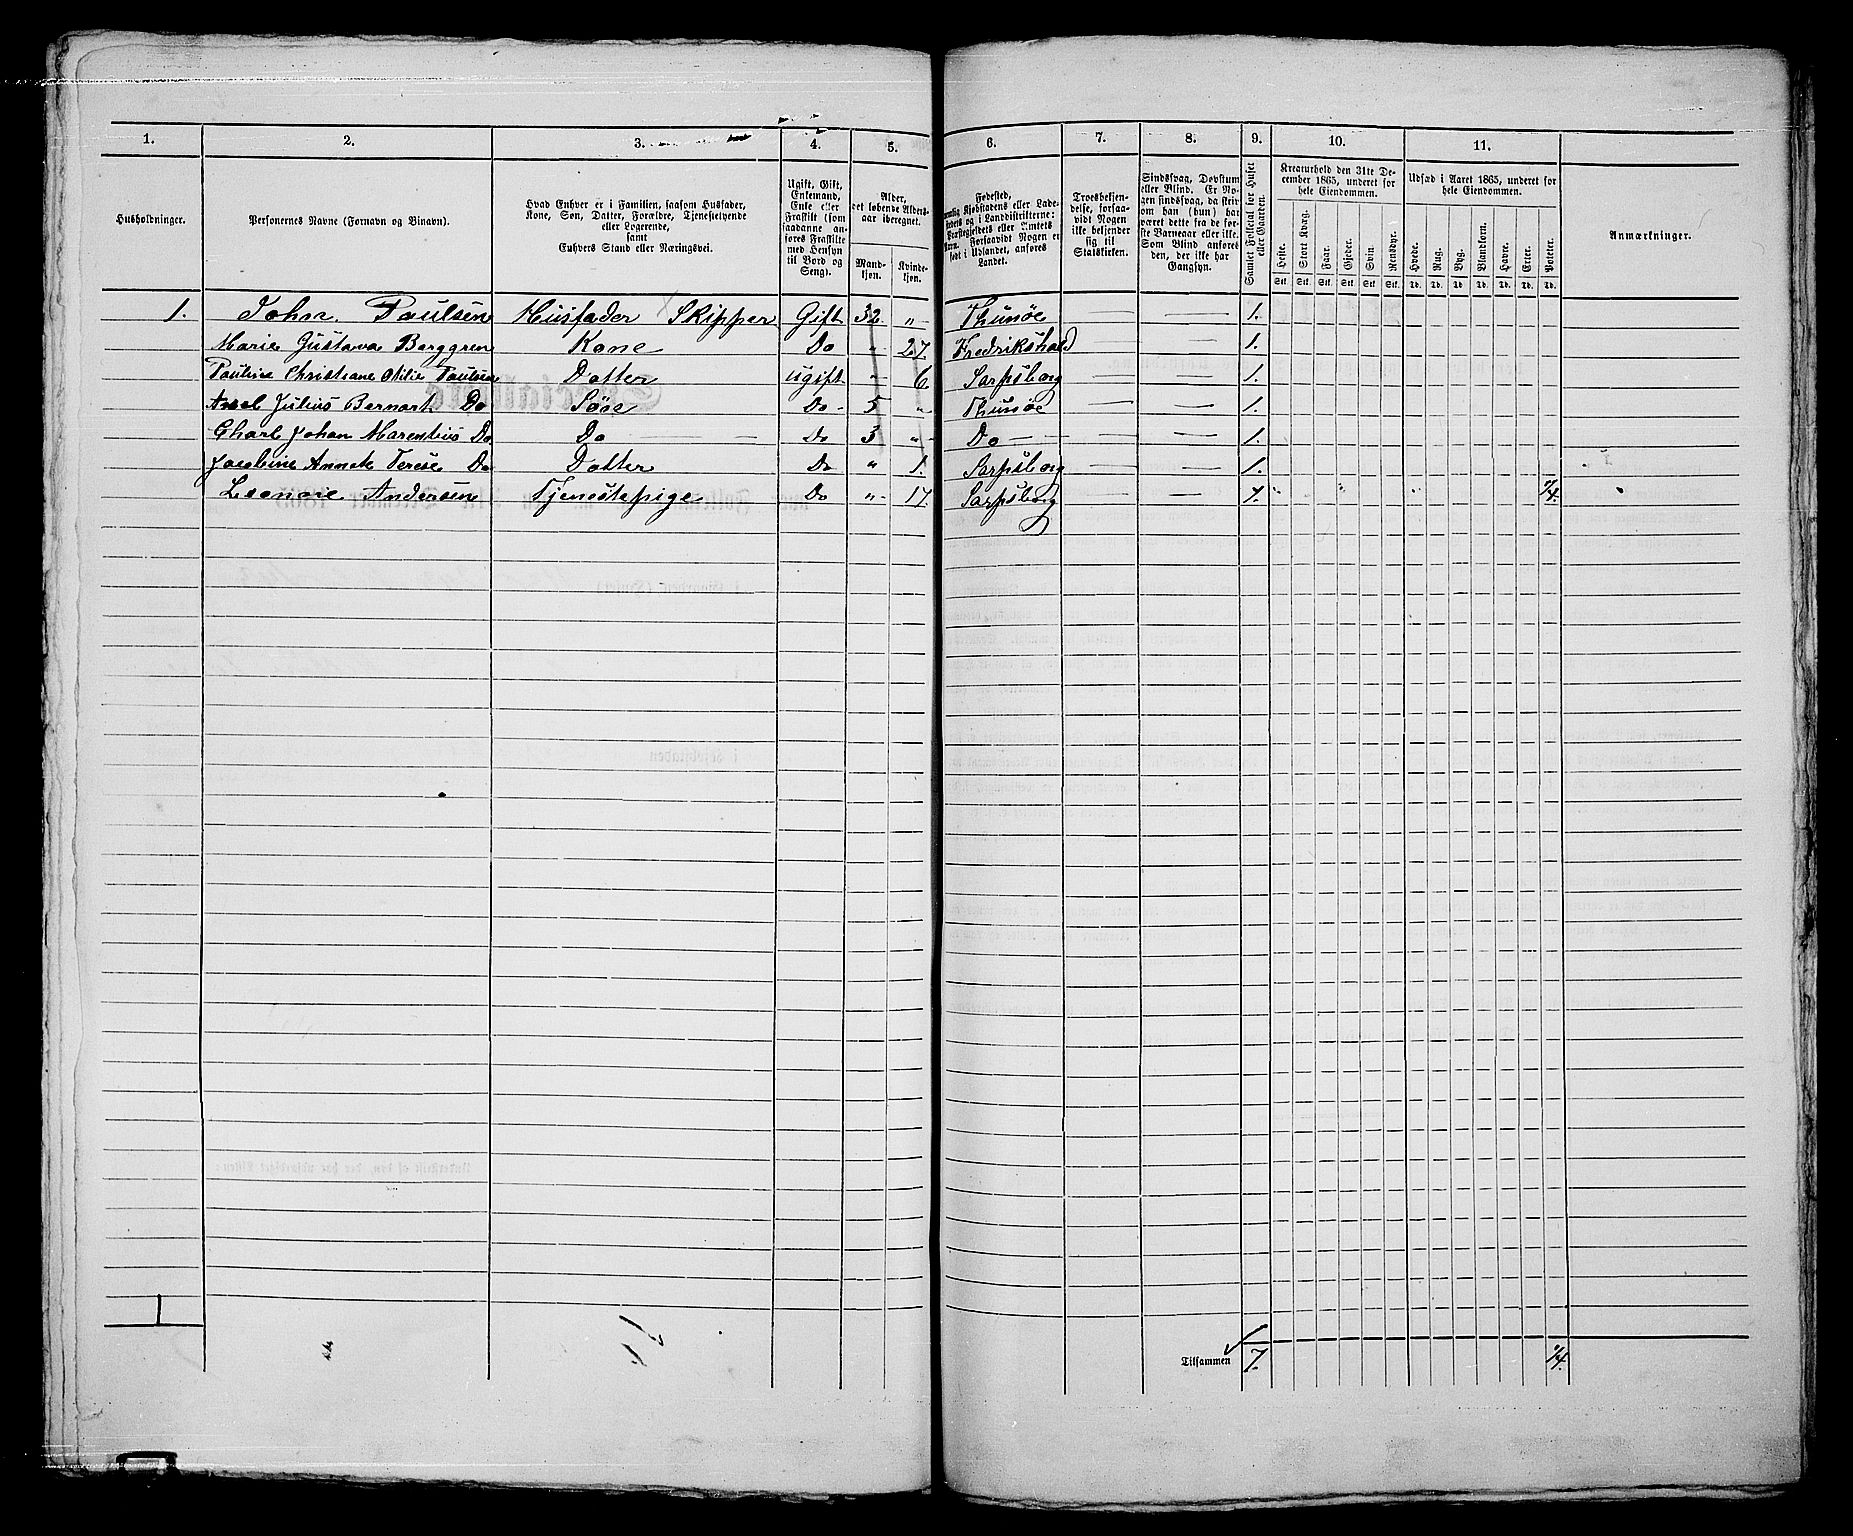 1. 2. 3. 4. 5. 6. 7. 8. 9. 10. 11.
Husholdninger.
Personernes Navne (Fornavn og Binavn).
Hvad Enhver er i Familien, saasom Husfader,
Kone, Søn, Datter, Forældre, Tjenestetyende
eller Logerende,
samt
Enhvers Stand eller Næringsvei.
Ugift, Gift,
Enkemand,
Enke eller
Fraskilt (som
saadanne an-
føres Fraskilte
med Hensyn
til Bord og
Seng).
Alder,
det løbende Alders-
aar iberegnet.
Mand-
kjøn.
Kvinde-
kjøn.
Fødested,
nemlig Kjøbstadens eller Lade-
stedets og i Landdistrikterne:
Præstegjeldets eller Amtets
Navn. Forsaavidt Nogen er
født i Udlandet, anføres
Landet.
Troesbekjen-
delse, forsaa-
vidt Nogen
ikke bekjender
sig til
Statskirken.
Sindssvag, Døvstum
eller Blind. Er No-
gen sindssvag, da skriv
om han (hun) har
været dette fra de før-
ste Barneaar eller ikke.
Som Blind anføres
den, der ikke har
Gangsyn.
Samlet Folketal for Huset
eller Gaarden.
Kreaturhold den 31te De-
cember 1865, underet for
hele Eiendommen.
Heste. Stort Kvæg. Faar. Gjeder. Svin. Rensdyr.
Stk. Stk. Stk. Stk. Stk. Stk.
Udsæd i Aaret 1865, underet for
hele Eiendommen.
Hvede. Rug. Byg. Blandkorn. Havre. Erter. Poteter.
Td. Td. Td. Td. Td. Td. Td.
Anmærkninger.
1. Johan Paulsen Husfader Skipper Gift 32 „ Thunöe — — 1.
Marie Gustava Berggren Kone Do „ 27 Fredrikshald — — 1.
Pauline Christiane Otilie Paulsen Datter ugift „ 6 Sarpsborg — — 1.
Axel Julius Bernart Do Söne Do 5 „ Thunöe — — 1.
Charl Johan Marentius Do Do Do 3 „ Do — — 1.
Jacobine Annete Terese Do Datter Do „ 1. Sarpsborg — — 1.
Leonore Andersen Tjenestepige Do „ 17 Sarpsborg — — 1. „ „ „ „ 1/4.
1
Tilsammen 7. 1/4.